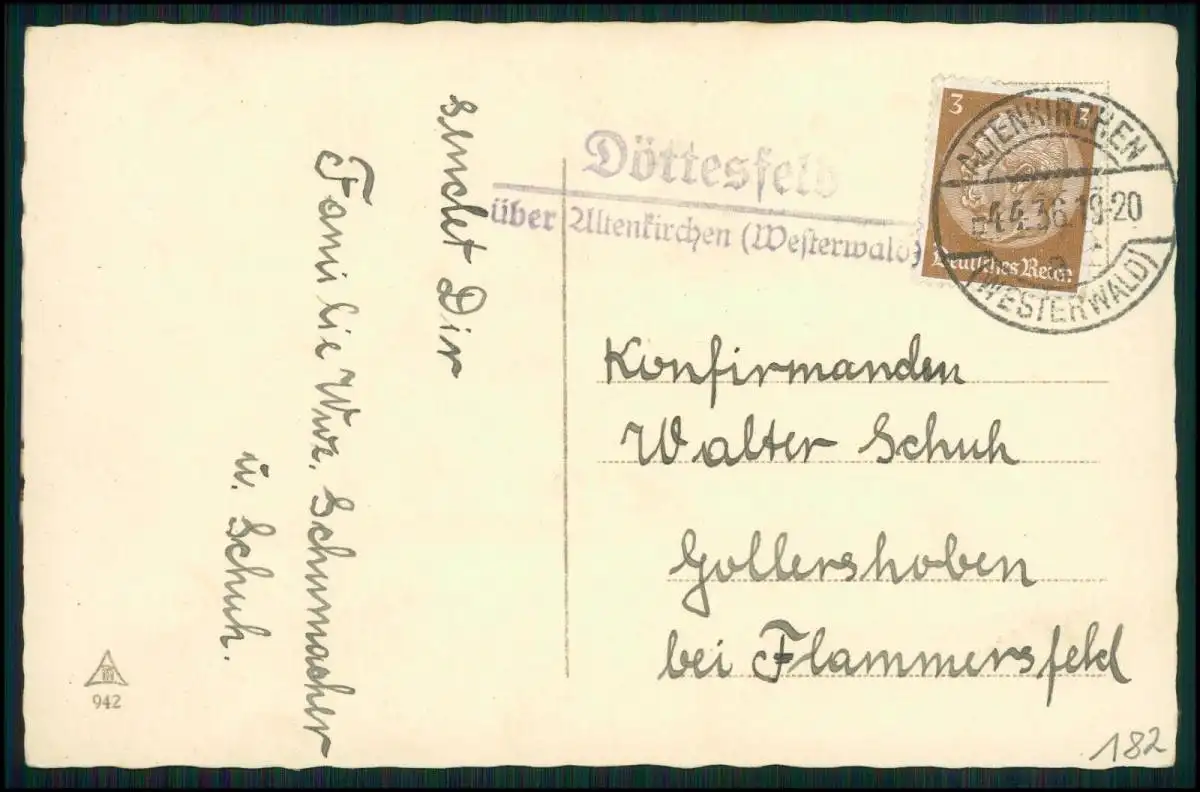 sendet Dir
Familie Wwe. Schumacher
u. Schuh.
942
Döttesfeld
über Altenkirchen (Westerwald)
3 3
Deutsches Reich
ALTENKIRCHEN
-4.4.36.19-20
a
(WESTERWALD)
Konfirmanden
Walter Schuh
Gollershoben
bei Flammersfeld
182